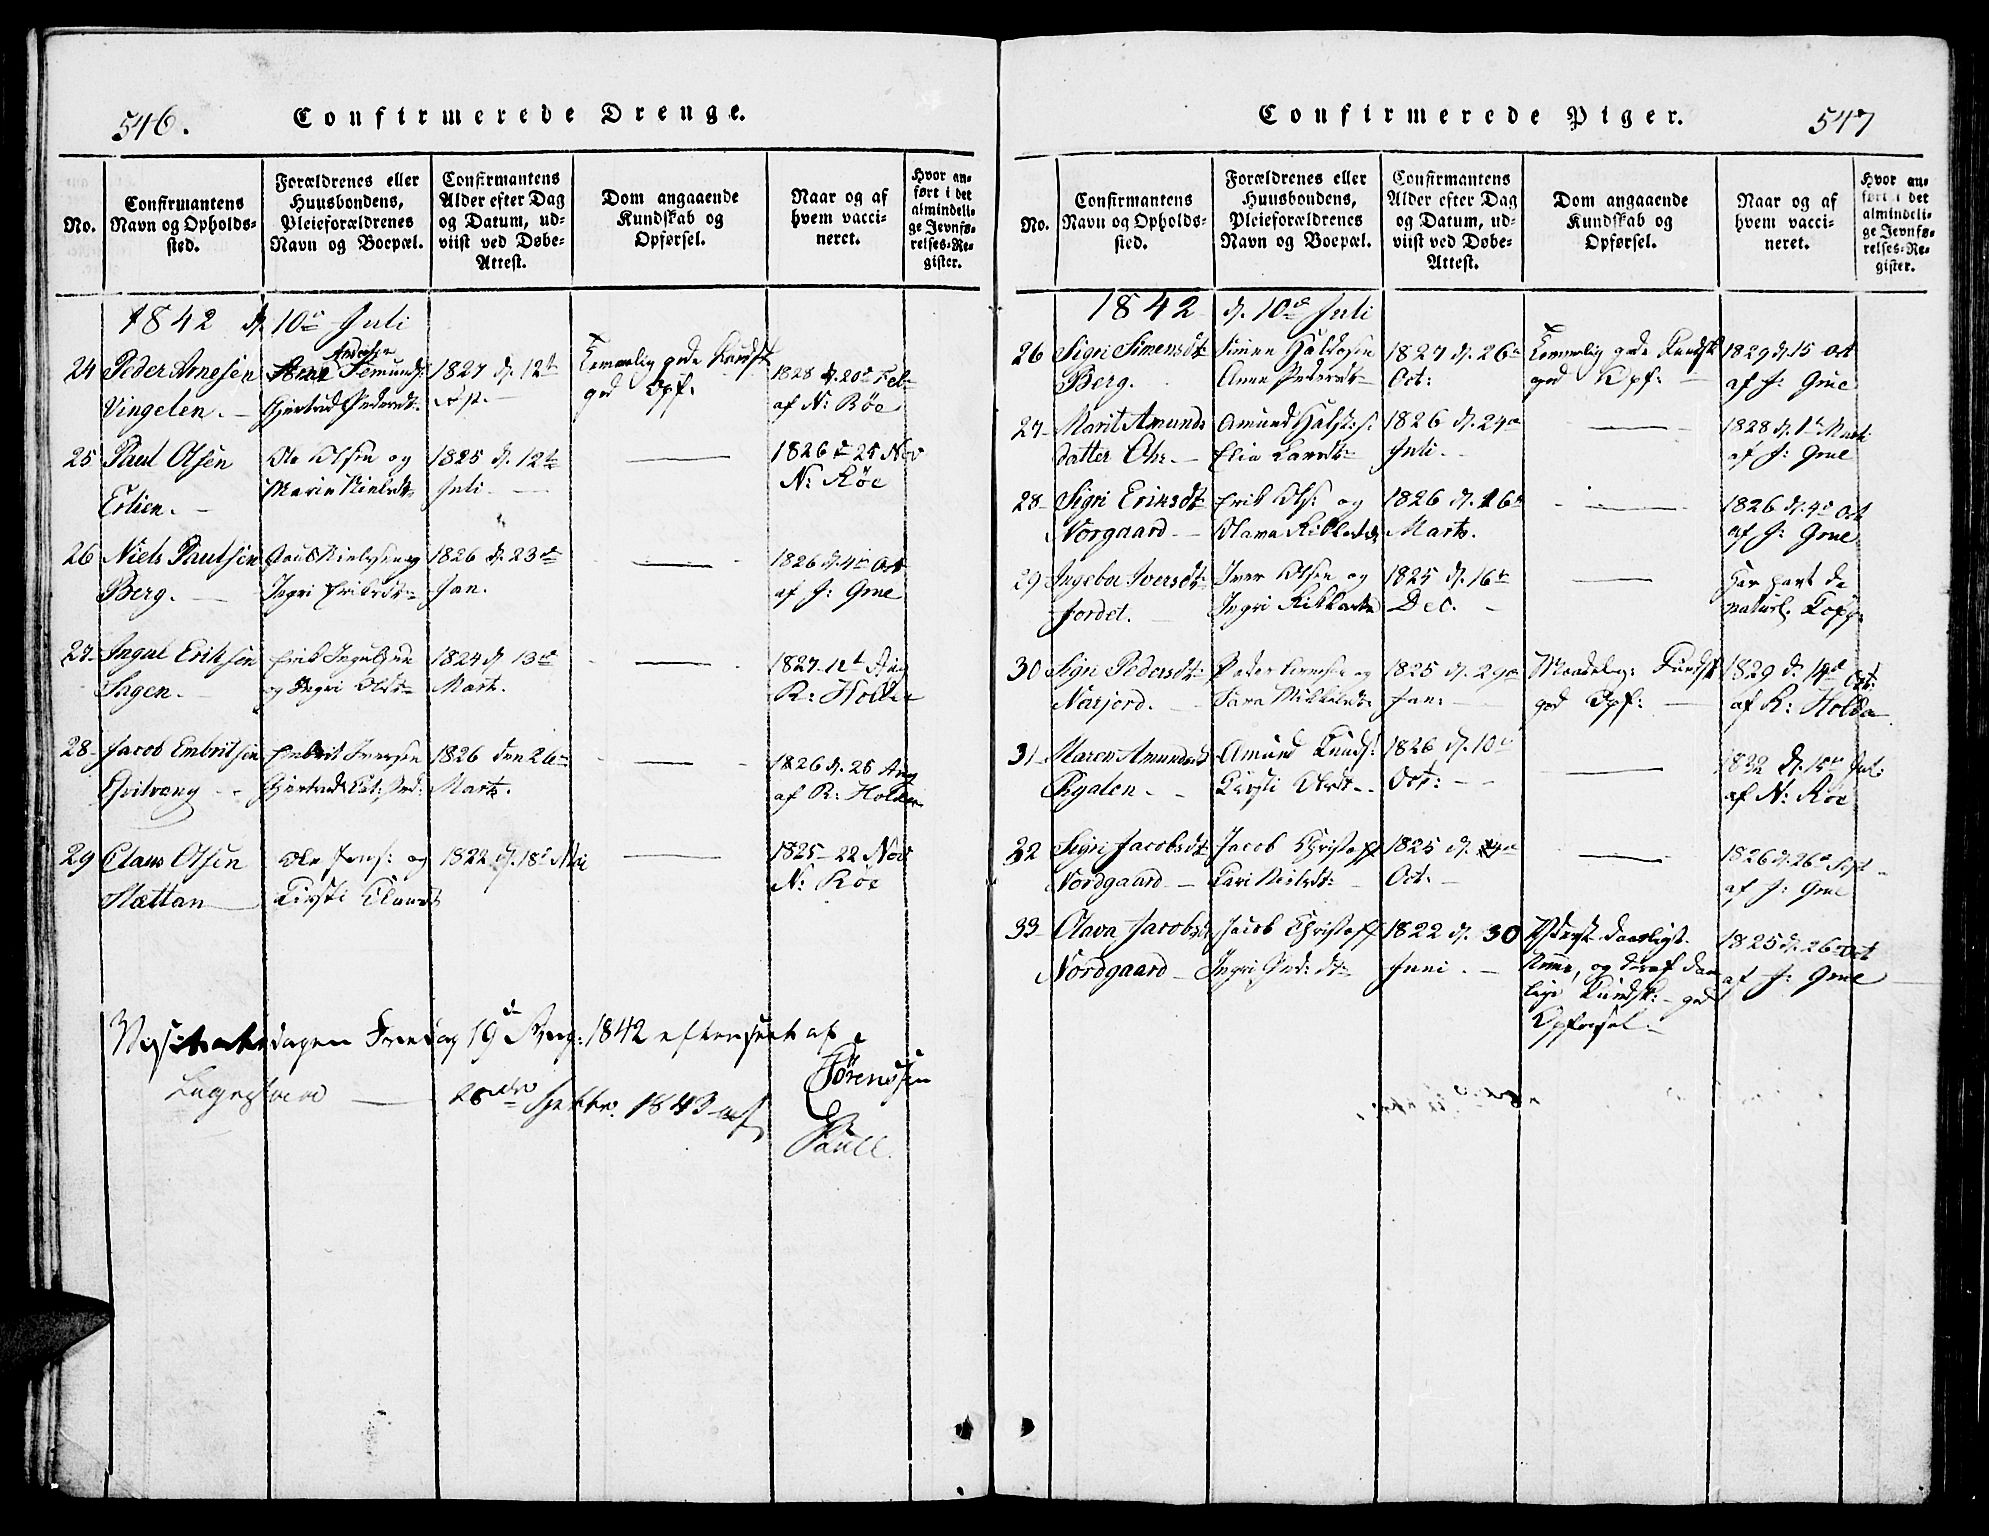 546.
Confirmerede Drenge.
No.
Confirmantens
Navn og Opholds-
sted.
Forældrenes eller
Huusbondens,
Pleieforældrenes
Navn og Boepæl.
Confirmantens
Alder efter Dag
og Datum, ud-
viist ved Døbe-
Attest.
Dom angaaende
Kundskab og
Opførsel.
Naar og af
hvem vacci-
neret.
Hvor an-
ført i det
almindeli-
ge Jevnfø-
relses-Re-
gister.
1842 d. 10de Juli
24 Peder Arnesen
Vingelen.
Femunds:
Gjertrud Pedersdt:
1827 d. 12te
Temmelig gode Kundsk
god Opf:
1828 d. 20de Feb
af N: Röe
25 Paul Olsen
Erlien.
Ole Olsen og
Marie Nielsdt:
1825 d. 12te
Juli.
1826 25 Nov
N: Röe
26 Niels Paulsen
Berg.
Paul Nielsen og
Ingri Eriksdt:
1826 d. 23de
Jan.
1826 d. 4de Oct
af J: Grue
27 Ingul Eriksen
Sagen.
Erik Ingulsen
og Ingri Olsdt:
1824 d 13de
Marts.
1827. 11te Aug
R: Holden
28 Jacob Embritsen
Embrit Iversen
1826 den 26de
Marts.
1826 d. 25 Aug
af R: Holden
29 Claus Olsen
Slættan
Ole Jens: og
Kirsti Clausdt
1822 d. 18de Mai
1825 22 Nov
N: Röe
Visitatsdagen Fredag 19de Aug: 1842 efterseet af
Sörenssen
Ligesaa 28de Septbr. 1843 af
547
Confirmerede Piger.
No.
Confirmantens
Navn og Opholds-
sted.
Forældrenes eller
Huusbondens,
Pleieforældrenes
Navn og Boepæl.
Confirmantens
Alder efter Dag
og Datum, ud-
viist ved Døbe-
Attest.
Dom angaaende
Kundskab og
Opførsel.
Naar og af
hvem vacci-
neret.
Hvor an-
ført i det
almindeli-
ge Jevnfø-
relses-Re-
gister.
1842 d. 10de Juli
26 Sigri Simensdt:
Berg.
Simen Haldosen
Anne Pedersdt:
1827 d. 26de
Oct:
Temmelig gode Kundsk
god Opf:
1829 d. 15 Oct
af J: Grue
27 Marit Amunds
datter
Amund Halst:s:
1826 d. 24de
Juli.
1828 d. 1te Marts
af J: Grue
28 Sigri Eriksdt:
Norgaard
Erik Ols: og
Olava Rikkardsdt
1826 d. 16de
Marts.
1826 d. 4de Oct
af J: Grue
29 Ingebor Iversdt:
Jordet.
Iver Olsen og
Ingri Rikkardsdt
1825 d. 16de
Dec.
Har havt de
naturl. Kopp:
30 Sigri Pedersdt:
Nosjord.
Peder Arnesen og
Sara Mikkelsdt:
1825 d. 29de
Jan:
Maadelig: Kundsk
god Opf:
1829 d. 14de Oct:
af R: Holden
31 Maren Amundsdt
Amund Knuds:
Kirsti Olsdt
1826 d. 10de
Oct:
1832 d. 15de Jul:
af N: Röe
32 Sigri Jacobsdt:
Nordgaard
Jacob Christoff
Kari Nielsdt:
1825 d.
Oct.
1826 d. 26de Sept
af J: Grue
33 Olava Jacobsdt
Nordgaard
Jacob Christoff
Ingri Ped: dt:
1822 d. 30
Juni.
Yderst daarligt
Nemme, og deraf daar
lige Kundsk: god
Opförsel.
1825 d. 26de Oct
af J: Grue